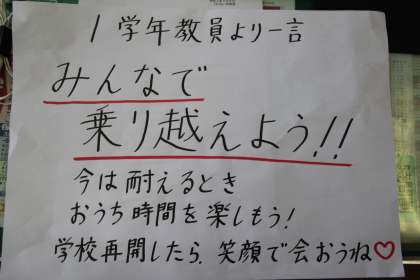 1学年教員より一言
みんなで
乗り越えよう!!
今は耐えるとき
おうち時間を楽しもう!
学校再開したら、笑顔で会おうね♡